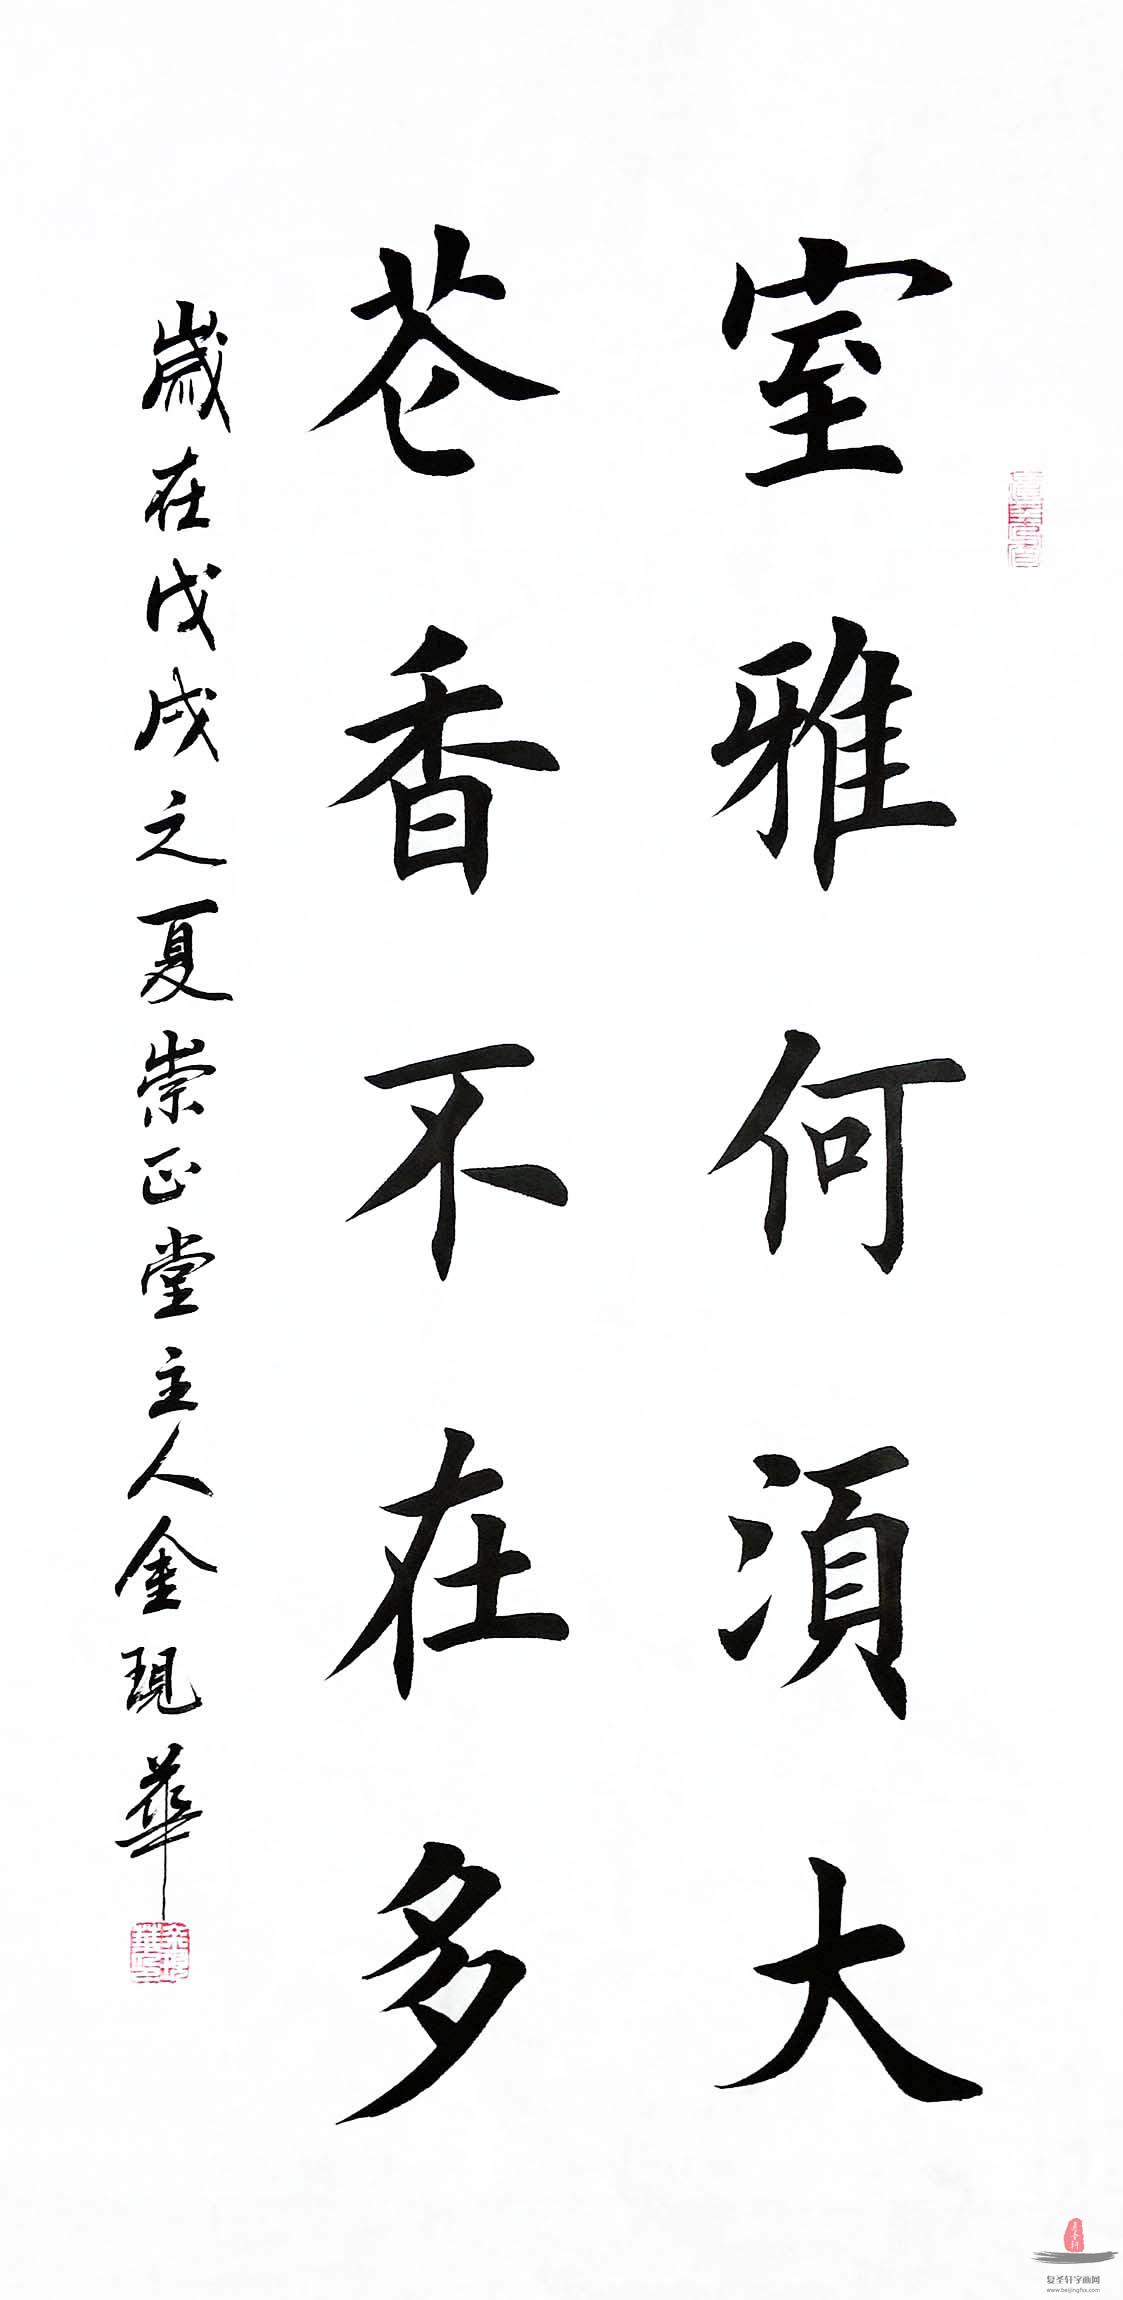 室雅何須大
花香不在多
歲在戊戌之夏崇正堂主人金現華
复圣轩字画网
www.beijingfsx.com